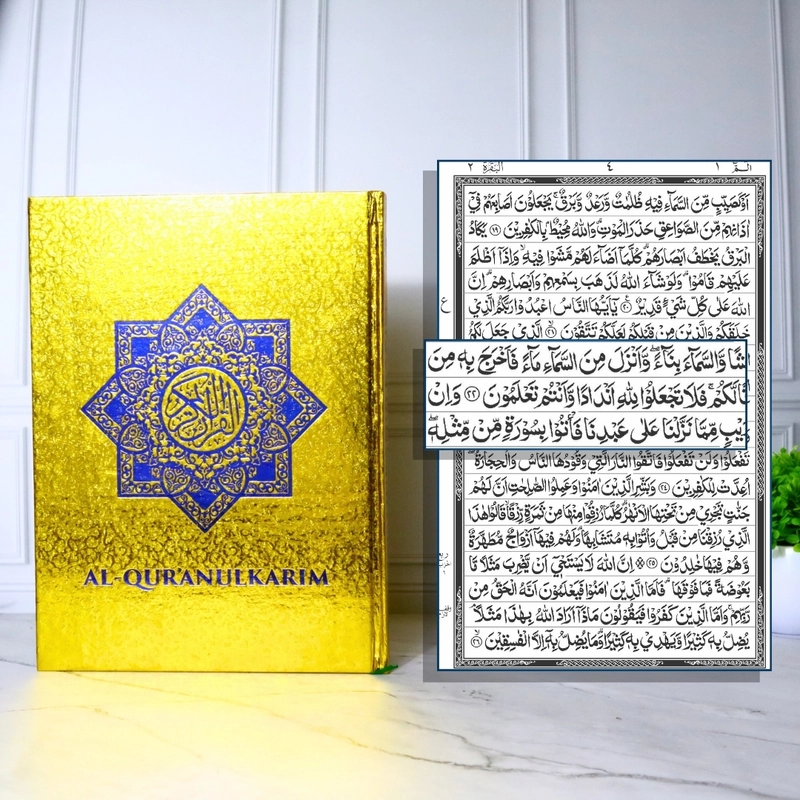 القرآن الكريم
AL-QUR'ANULKARIM
الٓمّٓ ١ ٤ الْبَقَرَة ٢
اَوْ كَصَيِّبٍ مِّنَ السَّمَآءِ فِيْهِ ظُلُمٰتٌ وَّرَعْدٌ وَّبَرْقٌ ۚ يَجْعَلُوْنَ اَصَابِعَهُمْ فِيْٓ
اٰذَانِهِمْ مِّنَ الصَّوَاعِقِ حَذَرَ الْمَوْتِ ؕ وَاللّٰهُ مُحِيْطٌۢ بِالْكٰفِرِيْنَ ﴿۱۹﴾ يَكَادُ
الْبَرْقُ يَخْطَفُ اَبْصَارَهُمْ ؕ كُلَّمَآ اَضَآءَ لَهُمْ مَّشَوْا فِيْهِ ۙ وَاِذَآ اَظْلَمَ
عَلَيْهِمْ قَامُوْا ؕ وَلَوْ شَآءَ اللّٰهُ لَذَهَبَ بِسَمْعِهِمْ وَاَبْصَارِهِمْ ؕ اِنَّ
اللّٰهَ عَلٰى كُلِّ شَيْءٍ قَدِيْرٌ ﴿۲۰﴾ يٰٓاَيُّهَا النَّاسُ اعْبُدُوْا رَبَّكُمُ الَّذِيْ
خَلَقَكُمْ وَالَّذِيْنَ مِنْ قَبْلِكُمْ لَعَلَّكُمْ تَتَّقُوْنَ ﴿۲۱﴾ الَّذِيْ جَعَلَ لَكُمُ
وَّالسَّمَآءَ بِنَآءً ۪ وَّاَنْزَلَ مِنَ السَّمَآءِ مَآءً فَاَخْرَجَ بِهٖ مِنَ
لَّكُمْ ۚ فَلَا تَجْعَلُوْا لِلّٰهِ اَنْدَادًا وَّاَنْتُمْ تَعْلَمُوْنَ ﴿۲۲﴾ وَاِنْ
رَيْبٍ مِّمَّا نَزَّلْنَا عَلٰى عَبْدِنَا فَاْتُوْا بِسُوْرَةٍ مِّنْ مِّثْلِهٖ ۪
تَفْعَلُوْا وَلَنْ تَفْعَلُوْا فَاتَّقُوا النَّارَ الَّتِيْ وَقُوْدُهَا النَّاسُ وَالْحِجَارَةُ ۖۚ
اُعِدَّتْ لِلْكٰفِرِيْنَ ﴿۲۴﴾ وَبَشِّرِ الَّذِيْنَ اٰمَنُوْا وَعَمِلُوا الصّٰلِحٰتِ اَنَّ لَهُمْ
جَنّٰتٍ تَجْرِيْ مِنْ تَحْتِهَا الْاَنْهٰرُ ؕ كُلَّمَا رُزِقُوْا مِنْهَا مِنْ ثَمَرَةٍ رِّزْقًا ۙ قَالُوْا هٰذَا
الَّذِيْ رُزِقْنَا مِنْ قَبْلُ ۙ وَاُتُوْا بِهٖ مُتَشَابِهًا ؕ وَلَهُمْ فِيْهَآ اَزْوَاجٌ مُّطَهَّرَةٌ
وَّهُمْ فِيْهَا خٰلِدُوْنَ ﴿۲۵﴾ اِنَّ اللّٰهَ لَا يَسْتَحْيٖٓ اَنْ يَّضْرِبَ مَثَلًا مَّا
بَعُوْضَةً فَمَا فَوْقَهَا ؕ فَاَمَّا الَّذِيْنَ اٰمَنُوْا فَيَعْلَمُوْنَ اَنَّهُ الْحَقُّ مِنْ
رَّبِّهِمْ ۚ وَاَمَّا الَّذِيْنَ كَفَرُوْا فَيَقُوْلُوْنَ مَاذَآ اَرَادَ اللّٰهُ بِهٰذَا مَثَلًا ۘ
يُضِلُّ بِهٖ كَثِيْرًا ۙ وَّيَهْدِيْ بِهٖ كَثِيْرًا ؕ وَمَا يُضِلُّ بِهٖٓ اِلَّا الْفٰسِقِيْنَ ﴿۲۶﴾